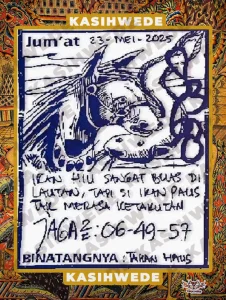 KASIHWEDE
Jum'at 23-MEI-2025
IKAN HIU SANGAT BUAS DI
LAUTAN, TAPI SI IKAN PAUS
TAK MERASA KETAKUTAN
JAGA2: 06-49-57
BINATANGNYA:
KASIHWEDE